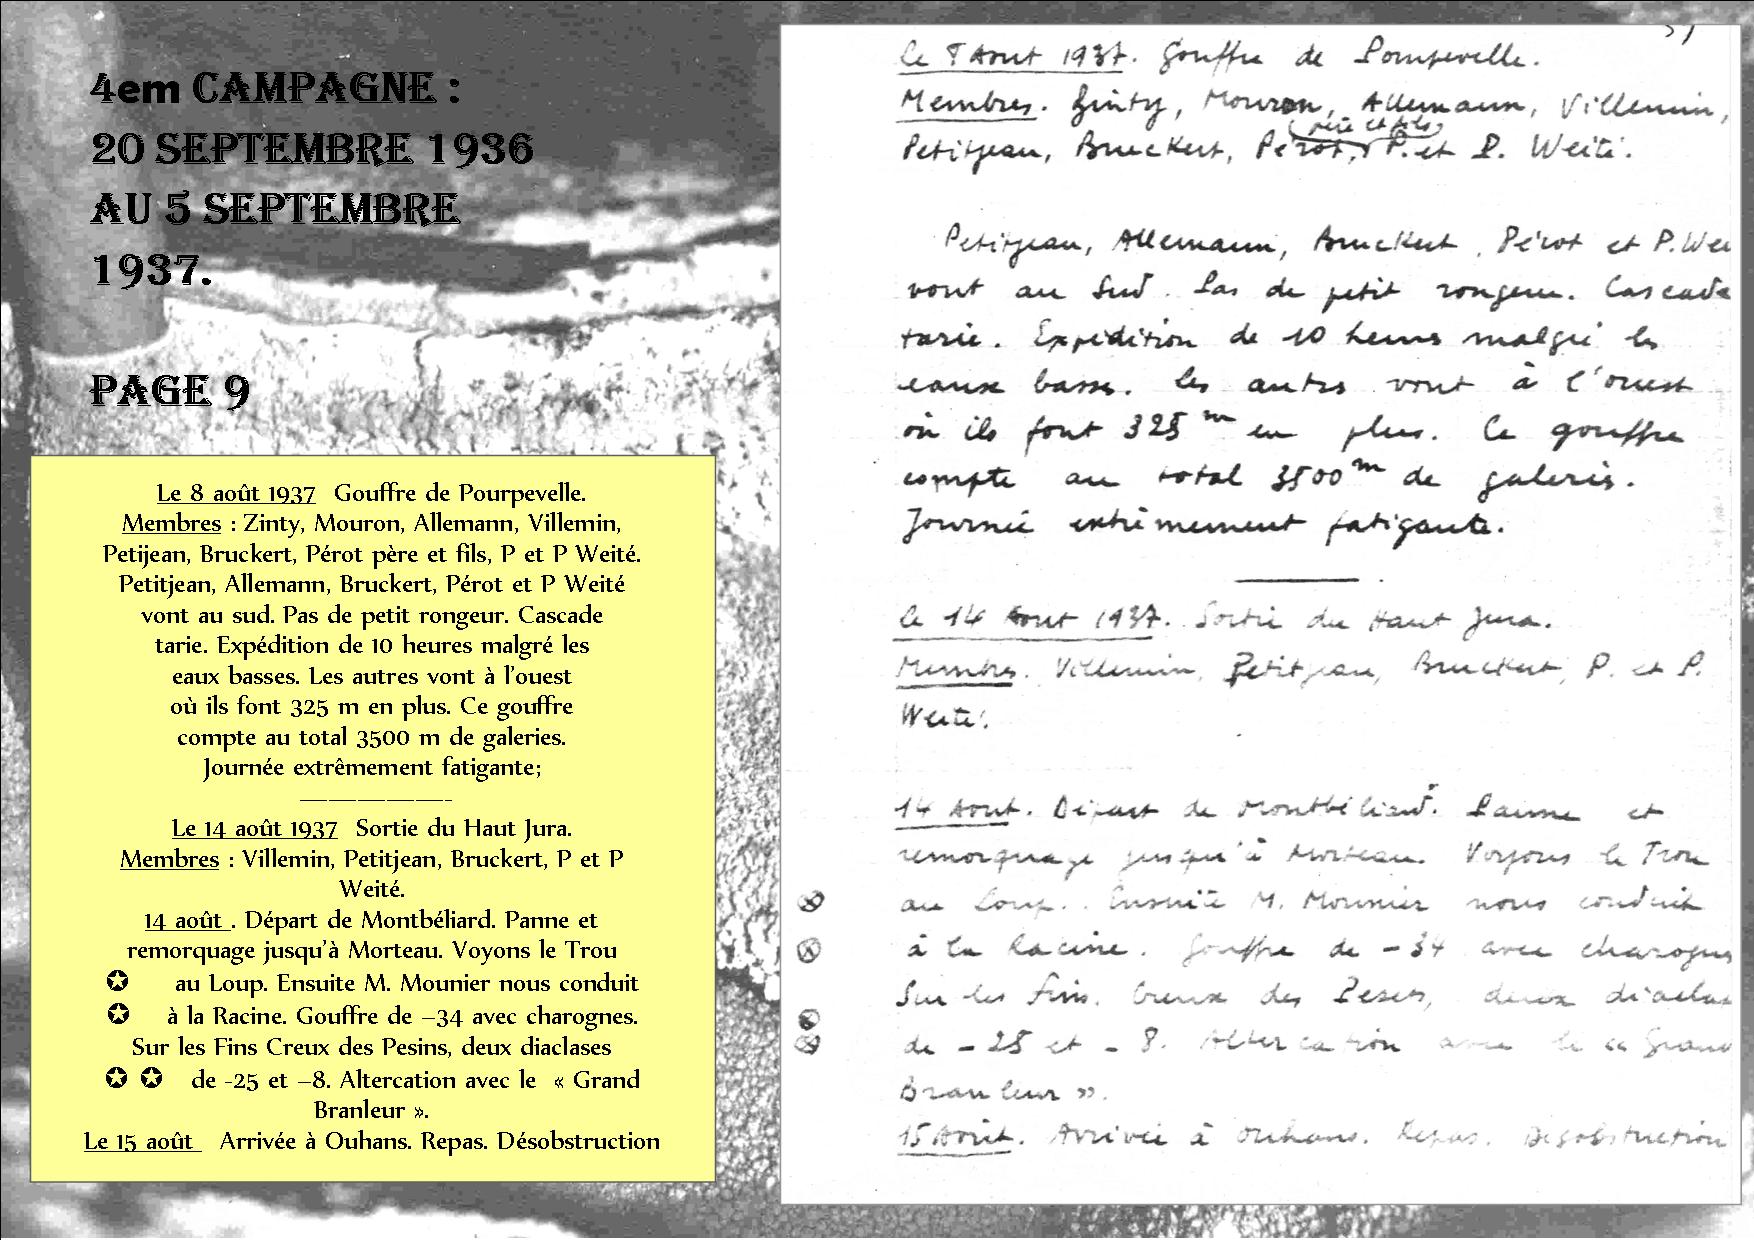 4em CAMPAGNE :
20 SEPTEMBRE 1936
AU 5 SEPTEMBRE
1937.
PAGE 9
Le 8 août 1937 Gouffre de Pourpevelle.
Membres : Zinty, Mouron, Allemann, Villemin,
Petijean, Bruckert, Pérot père et fils, P et P Weité.
Petitjean, Allemann, Bruckert, Pérot et P Weité
vont au sud. Pas de petit rongeur. Cascade
tarie. Expédition de 10 heures malgré les
eaux basses. Les autres vont à l'ouest
où ils font 325 m en plus. Ce gouffre
compte au total 3500 m de galeries.
Journée extrêmement fatigante;
——————-
Le 14 août 1937 Sortie du Haut Jura.
Membres : Villemin, Petitjean, Bruckert, P et P
Weité.
14 août . Départ de Montbéliard. Panne et
remorquage jusqu'à Morteau. Voyons le Trou
✪ au Loup. Ensuite M. Mounier nous conduit
✪ à la Racine. Gouffre de –34 avec charognes.
Sur les Fins Creux des Pesins, deux diaclases
✪ ✪ de -25 et –8. Altercation avec le « Grand
Branleur ».
Le 15 août Arrivée à Ouhans. Repas. Désobstruction
Le 8 Aout 1937. Gouffre de Pourpevelle.
Membres. Zinty, Mouron, Allemann, Villemin,
(père et fils)
Petitjean, Bruckert, Pérot, P. et P. Weité.
Petitjean, Allemann, Bruckert, Pérot et P. Wei
vont au Sud. Pas de petit rongeur. Cascade
tarie. Expédition de 10 heures malgré les
eaux basses. Les autres vont à l'ouest
où ils font 325 m en plus. Ce gouffre
compte au total 3500 m de galeries.
Journée extrêmement fatigante.
Le 14 Aout 1937. Sortie du Haut Jura.
Membres. Villemin, Petitjean, Bruckert, P. et P.
Weité.
14 Aout. Départ de Montbéliard. Panne et
remorquage jusqu'à Morteau. Voyons le Trou
au Loup. Ensuite M. Mounier nous conduit
à la Racine. Gouffre de -34 avec charognes
Sur les Fins. Creux des Peses, deux diaclas
de -25 et -8. Altercation avec le « Grand
Branleur ».
15 Août. Arrivée à Ouhans. Repas. Désobstruction